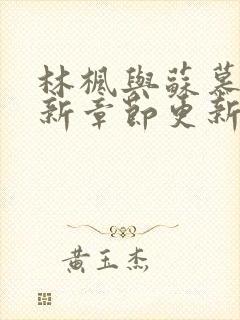 林楓與蘇慕
新章節更新
黃玉杰